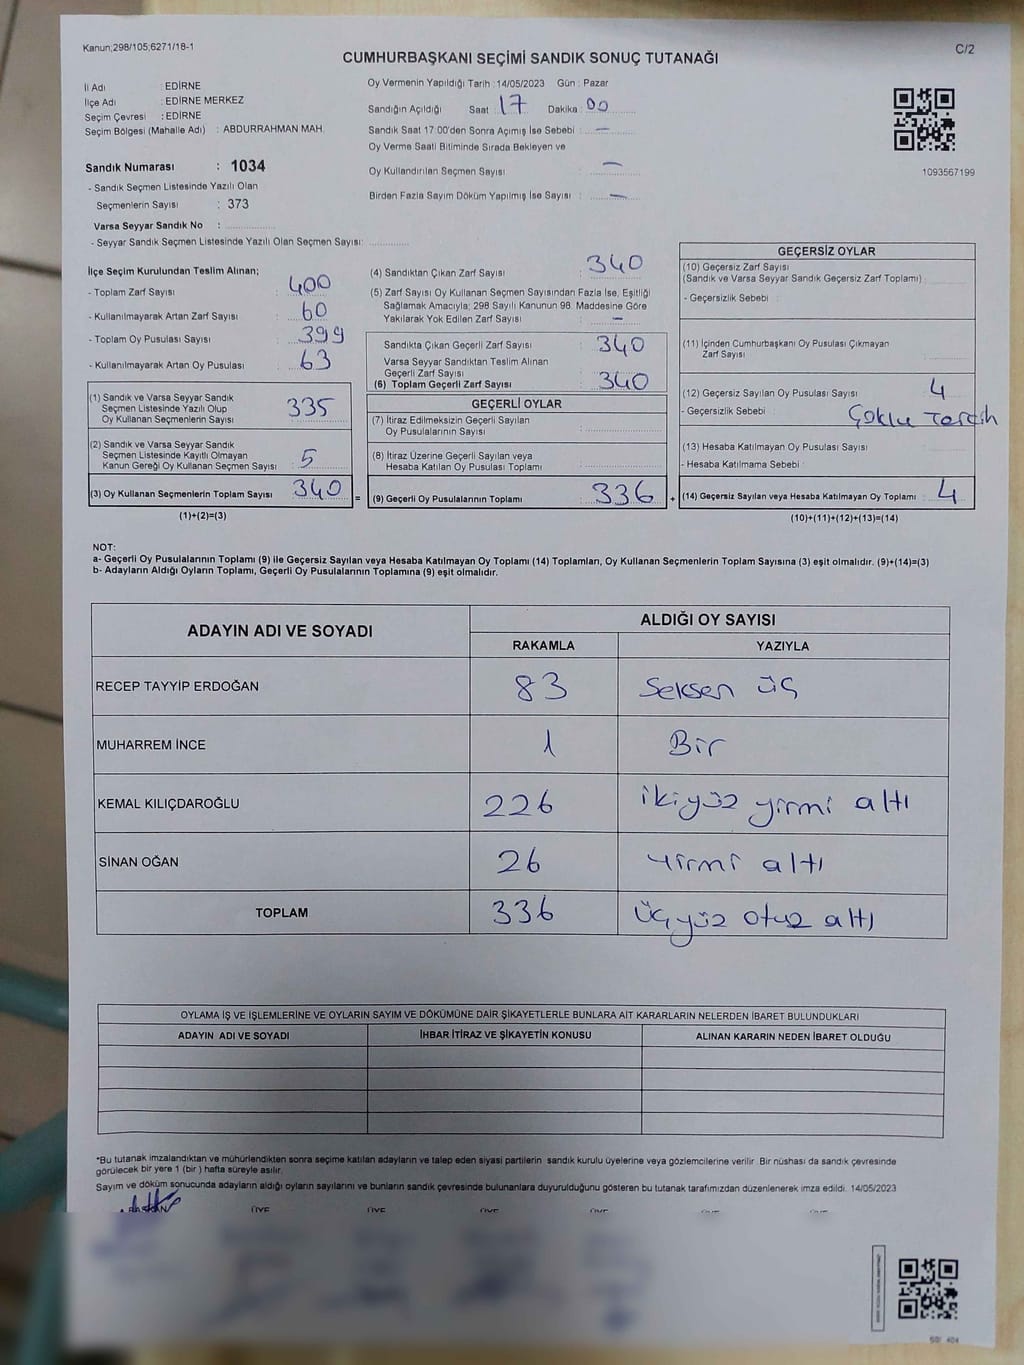 Kanun;298/105,6271/18-1
C/2
CUMHURBAŞKANI SEÇİMİ SANDIK SONUÇ TUTANAĞI
İl Adı : EDİRNE
İlçe Adı : EDİRNE MERKEZ
Seçim Çevresi : EDİRNE
Seçim Bölgesi (Mahalle Adı) : ABDURRAHMAN MAH.
Oy Vermenin Yapıldığı Tarih : 14/05/2023 Gün : Pazar
Sandığın Açıldığı Saat 17 Dakika 00
Sandık Saat 17:00'den Sonra Açımış İse Sebebi : —
Oy Verme Saati Bitiminde Sırada Bekleyen ve
Oy Kullandırılan Seçmen Sayısı : —
Birden Fazla Sayım Döküm Yapılmış İse Sayısı : —
1093567199
Sandık Numarası : 1034
- Sandık Seçmen Listesinde Yazılı Olan
Seçmenlerin Sayısı : 373
Varsa Seyyar Sandık No :
- Seyyar Sandık Seçmen Listesinde Yazılı Olan Seçmen Sayısı:
İlçe Seçim Kurulundan Teslim Alınan;
- Toplam Zarf Sayısı : 400
- Kullanılmayarak Artan Zarf Sayısı : 60
- Toplam Oy Pusulası Sayısı : 399
- Kullanılmayarak Artan Oy Pusulası : 63
(1) Sandık ve Varsa Seyyar Sandık
Seçmen Listesinde Yazılı Olup
Oy Kullanan Seçmenlerin Sayısı : 335
(2) Sandık ve Varsa Seyyar Sandık
Seçmen Listesinde Kayıtlı Olmayan
Kanun Gereği Oy Kullanan Seçmen Sayısı : 5
(3) Oy Kullanan Seçmenlerin Toplam Sayısı : 340
(1)+(2)=(3)
(4) Sandıktan Çıkan Zarf Sayısı : 340
(5) Zarf Sayısı Oy Kullanan Seçmen Sayısından Fazla İse, Eşitliği
Sağlamak Amacıyla; 298 Sayılı Kanunun 98. Maddesine Göre
Yakılarak Yok Edilen Zarf Sayısı : —
Sandıkta Çıkan Geçerli Zarf Sayısı : 340
Varsa Seyyar Sandıktan Teslim Alınan
Geçerli Zarf Sayısı :
(6) Toplam Geçerli Zarf Sayısı : 340
GEÇERLİ OYLAR
(7) İtiraz Edilmeksizin Geçerli Sayılan
Oy Pusulalarının Sayısı :
(8) İtiraz Üzerine Geçerli Sayılan veya
Hesaba Katılan Oy Pusulası Toplamı :
= (9) Geçerli Oy Pusulalarının Toplamı : 336
GEÇERSİZ OYLAR
(10) Geçersiz Zarf Sayısı
(Sandık ve Varsa Seyyar Sandık Geçersiz Zarf Toplamı) :
- Geçersizlik Sebebi :
(11) İçinden Cumhurbaşkanı Oy Pusulası Çıkmayan
Zarf Sayısı :
(12) Geçersiz Sayılan Oy Pusulası Sayısı : 4
- Geçersizlik Sebebi : Çoklu Tercih
(13) Hesaba Katılmayan Oy Pusulası Sayısı :
- Hesaba Katılmama Sebebi :
+ (14) Geçersiz Sayılan veya Hesaba Katılmayan Oy Toplamı : 4
(10)+(11)+(12)+(13)=(14)
NOT:
a- Geçerli Oy Pusulalarının Toplamı (9) ile Geçersiz Sayılan veya Hesaba Katılmayan Oy Toplamı (14) Toplamları, Oy Kullanan Seçmenlerin Toplam Sayısına (3) eşit olmalıdır. (9)+(14)=(3)
b- Adayların Aldığı Oyların Toplamı, Geçerli Oy Pusulalarının Toplamına (9) eşit olmalıdır.
ADAYIN ADI VE SOYADI
ALDIĞI OY SAYISI
RAKAMLA YAZIYLA
RECEP TAYYİP ERDOĞAN 83 Seksen üç
MUHARREM İNCE 1 Bir
KEMAL KILIÇDAROĞLU 226 ikiyüz yirmi altı
SİNAN OĞAN 26 Yirmi altı
TOPLAM 336 Üçyüz otuz altı
OYLAMA İŞ VE İŞLEMLERİNE VE OYLARIN SAYIM VE DÖKÜMÜNE DAİR ŞİKAYETLERLE BUNLARA AİT KARARLARIN NELERDEN İBARET BULUNDUKLARI
ADAYIN ADI VE SOYADI İHBAR İTİRAZ VE ŞİKAYETİN KONUSU ALINAN KARARIN NEDEN İBARET OLDUĞU
*Bu tutanak imzalandıktan ve mühürlendikten sonra seçime katılan adayların ve talep eden siyasi partilerin sandık kurulu üyelerine veya gözlemcilerine verilir. Bir nüshası da sandık çevresinde
görülecek bir yere 1 (bir ) hafta süreyle asılır.
Sayım ve döküm sonucunda adayların aldığı oyların sayılarını ve bunların sandık çevresinde bulunanlara duyurulduğunu gösteren bu tutanak tarafımızdan düzenlenerek imza edildi. 14/05/2023
BAŞKAN ÜYE ÜYE ÜYE ÜYE